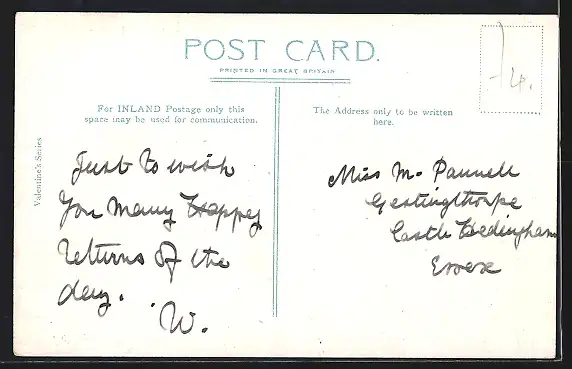 POST CARD.
PRINTED IN GREAT BRITAIN
-/4.
For INLAND Postage only this
space may be used for communication.
The Address only to be written
here.
Valentine's Series
Just to wish
You Many Happy
Returns of the
day.
W.
Miss M. Pannell
Gestingthorpe
Castle Hedingham
Essex